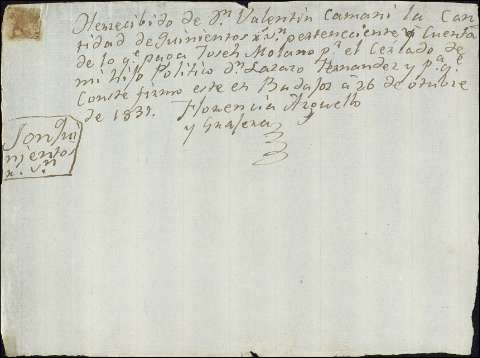 He rrecibido de Dn Valentin Camani la Can
tidad de quinientos rs. vn. pertenecciente à Cuenta
de lo qe. paga Joseh Molano pr. el Cerlado de
mi hijo Politico Dn. Lazaro Hernandez y pa. qe.
Conste firmo este en Badajoz à 26 de otubre
de 1831. Florencia Arguello
y Grajera
Son qui
nientos
r. vn